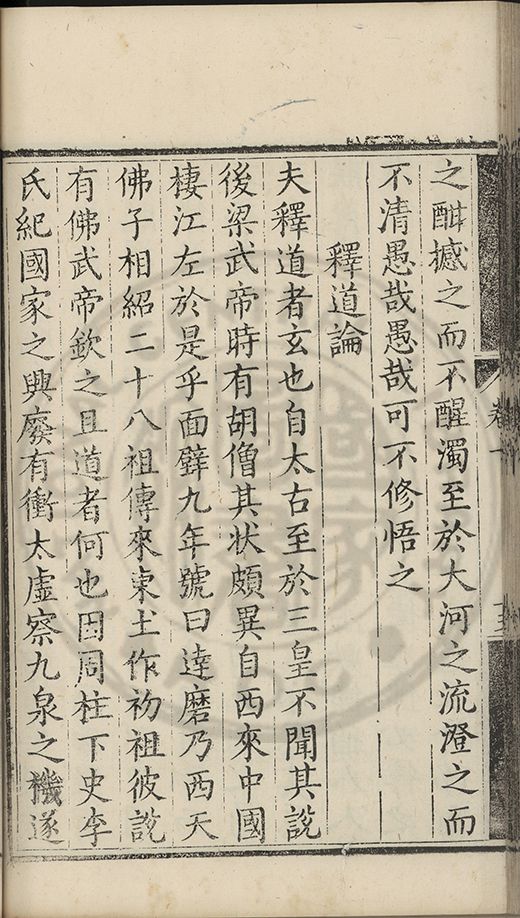 之酣撼之而不醒濁至於大河之流澄之而
不清愚哉愚哉可不修悟之
釋道論
夫釋道者玄也自太古至於三皇不聞其說
後梁武帝時有胡僧其状頗異自西來中國
棲江左於是乎面壁九年號曰達磨乃西天
佛子相紹二十八祖傳來東土作初祖彼說
有佛武帝欽之且道者何也因周柱下史李
氏紀國家之興廢有衝太虛察九泉之機遂